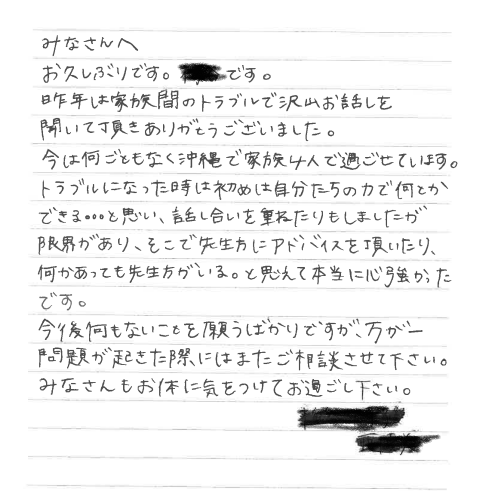 みなさんへ
お久しぶりです。 です。
昨年は家族間のトラブルで沢山お話しを
聞いて頂きありがとうございました。
今は何ごともなく沖縄で家族4人で過ごせています。
トラブルになった時は初めは自分たちの力で何とか
できる。。。と思い、話し合いを重ねたりもしましたが
限界があり、そこで先生方にアドバイスを頂いたり、
何かあっても先生方がいる。と思えて本当に心強かった
です。
今後何もないことを願うばかりですが、万が一
問題が起きた際にはまたご相談させて下さい。
みなさんもお体に気をつけてお過ごし下さい。